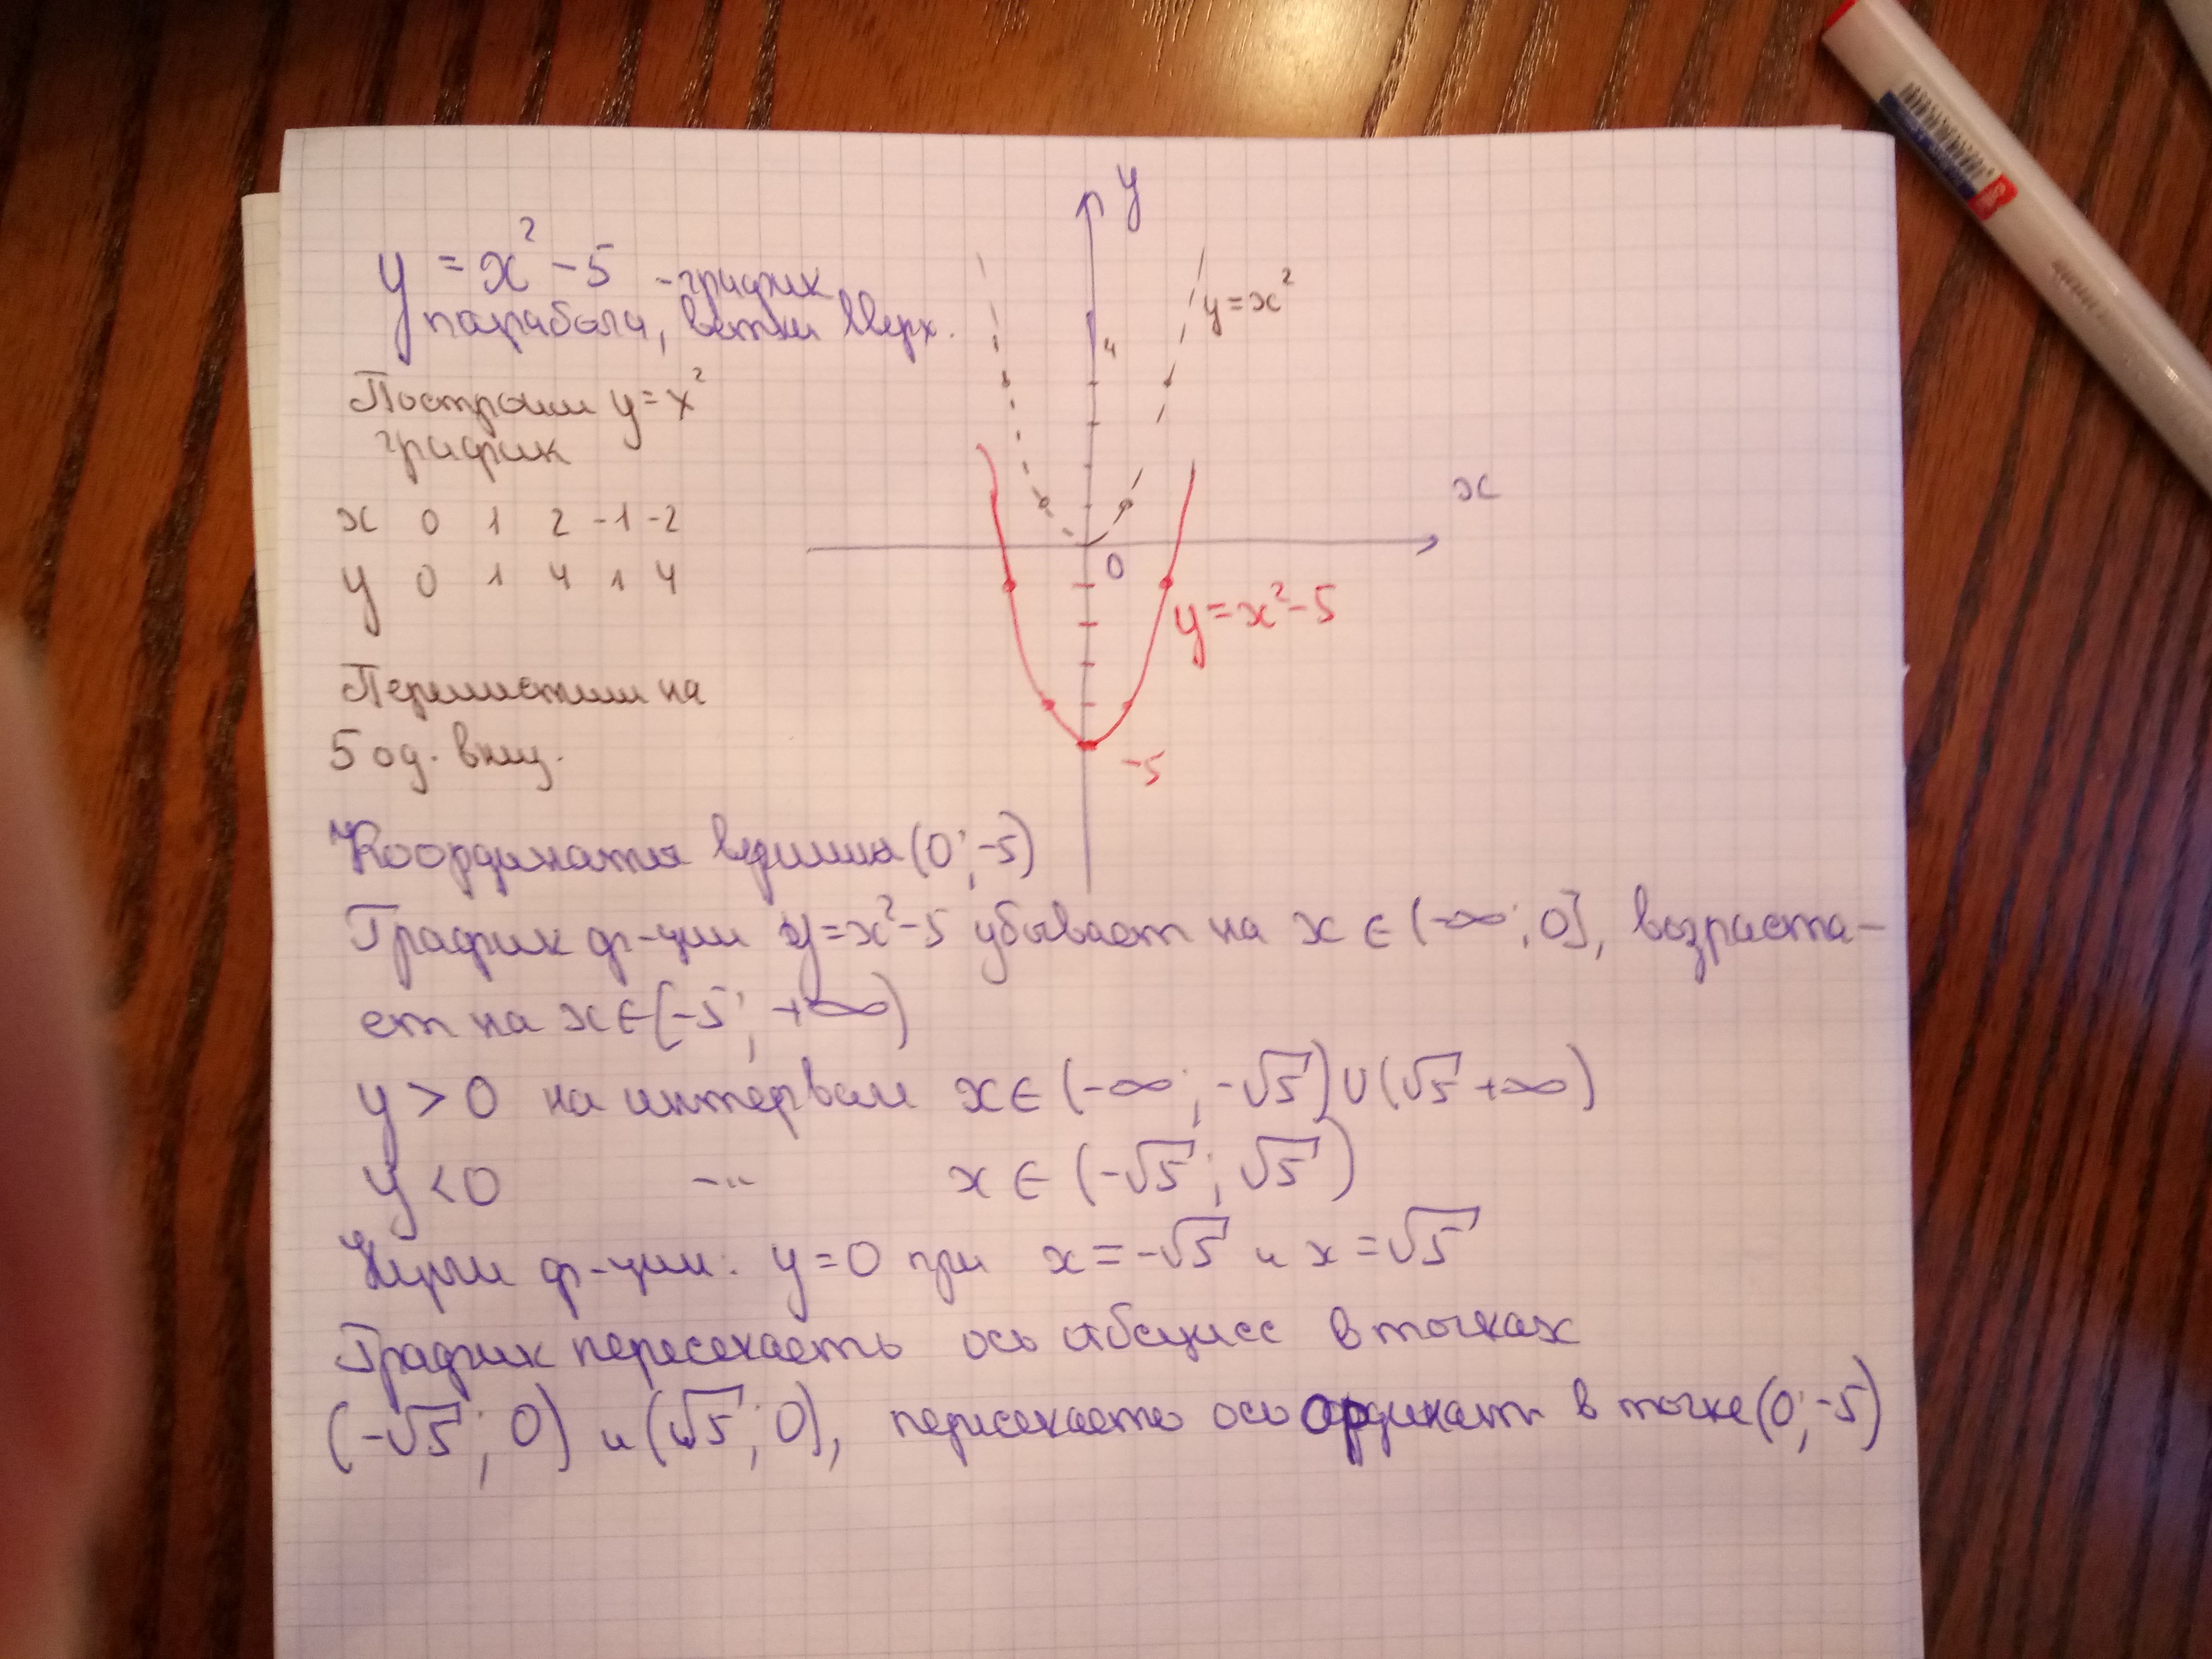 y = x² - 5 - график
парабола, ветки вверх.
Построим y = x²
график
x 0 1 2 -1 -2
y 0 1 4 1 4
Переместим на
5 ед. вниз.
y
y = x²
4
x
0
y = x² - 5
-5
Координаты вершины (0; -5)
График ф-ции y = x² - 5 убывает на x ∈ (-∞; 0], возраста-
ет на x ∈ [-5; +∞)
y > 0 на интервале x ∈ (-∞; -√5) ∪ (√5 +∞)
y < 0 -"- x ∈ (-√5; √5)
Нули ф-ции: y = 0 при x = -√5 и x = √5
График пересекает ось абсцисс в точках
(-√5; 0) и (√5; 0), пересекает ось ординат в точке (0; -5)